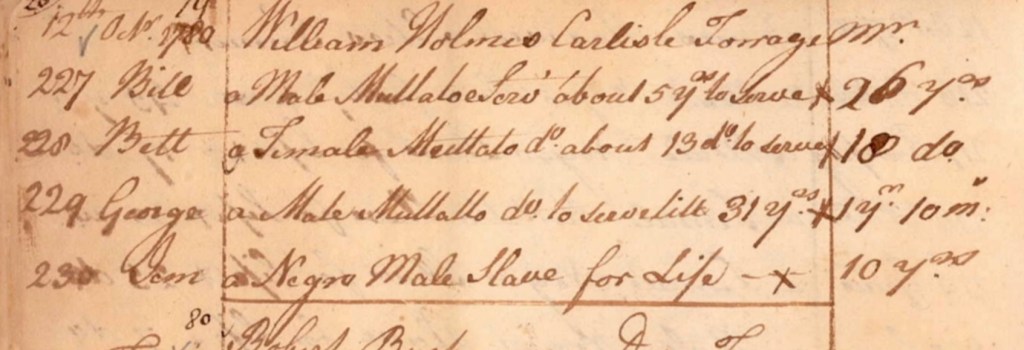 12th Octr. 1780 William Holmes Carlisle Forrage Mr.
227 Bill a Male Mullatoe Serv' about 5 yrs to serve x 26 yrs
228 Bett a Female Mullato do. about 13 do. to serve x 18 do.
229 George a Male Mullatto do. to serve till 31 yrs. x 1 yr. 10 m:
230 Dem a Negro Male Slave for Life - x 10 yrs
80
Robert